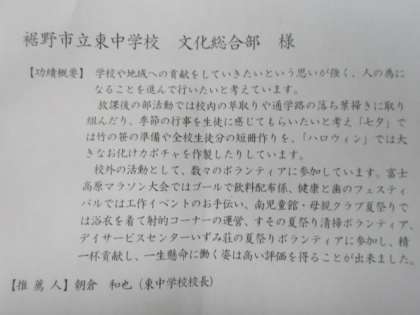 裾野市立東中学校 文化総合部 様
【功績概要】 学校や地域への貢献をしていきたいという思いが強く、人の為に
なることを進んで行いたいと考えています。
放課後の部活動では校内の草取りや通学路の落ち葉掃きに取り
組んだり、季節の行事を生徒に感じてもらいたいと考え「七夕」で
は竹の笹の準備や全校生徒分の短冊作りを、「ハロウィン」では大
きなお化けカボチャを作製したりしています。
校外の活動として、数々のボランティアに参加しています。富士
高原マラソン大会ではゴールで飲料配布係、健康と歯のフェスティ
バルでは工作イベントのお手伝い、南児童館・母親クラブ夏祭りで
は浴衣を着て射的コーナーの運営、すその夏祭り清掃ボランティア、
デイサービスセンターいずみ荘の夏祭りボランティアに参加し、精
一杯貢献し、一生懸命に働く姿は高い評価を得ることが出来ました。
【推薦人】朝倉 和也(東中学校校長)